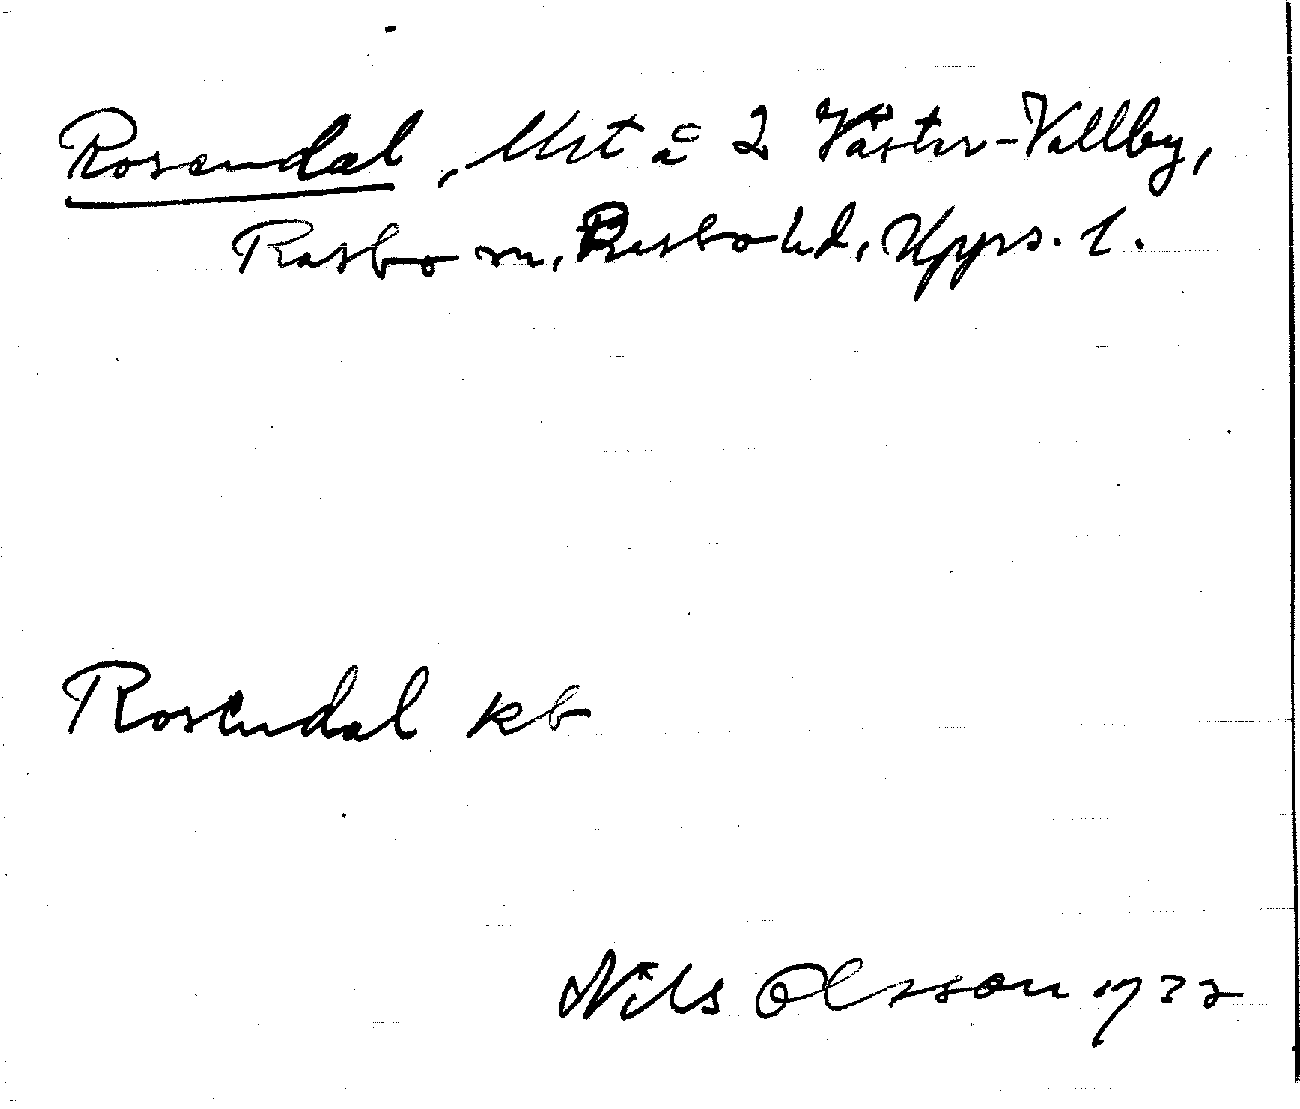 Rosendal, Utst å 2 Väster-Vallby,
Rasbo sn, Rasbo hd, Upps. l.
Rosendal kb
Nils Olsson 1932